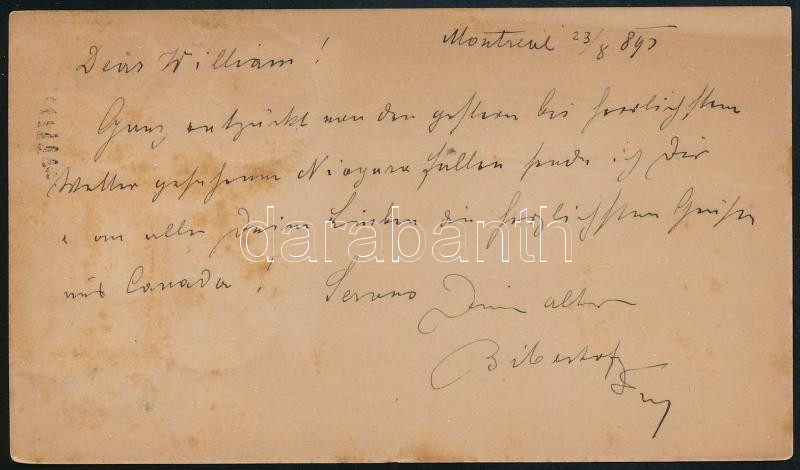 Montreal 23/8 897
Dear William!
Ganz entzückt von den gestern bei herrlichstem
Wetter gesehenen Niagara fällen sende ich Dir
u an alle Deine Lieben die herzlichsten Grüße
aus Canada! Servus Dein alter
darabanth.com